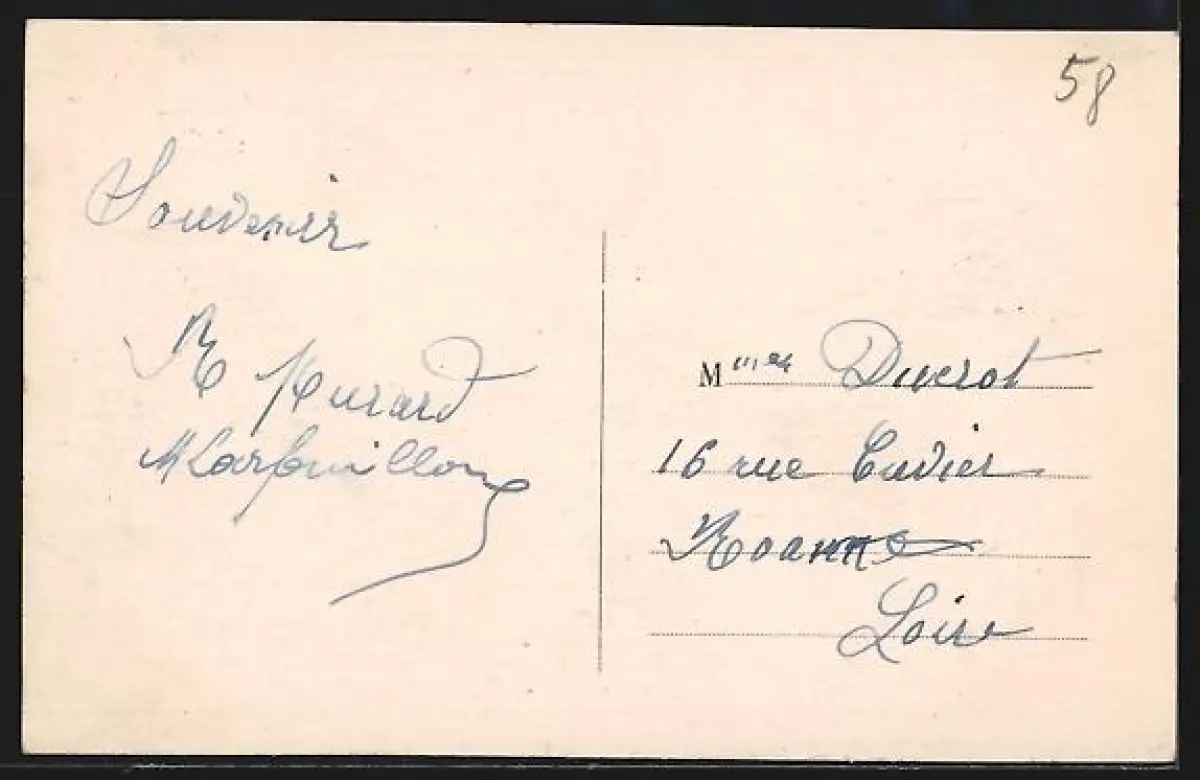 58
Souvenir
R Murard
M Larfouillon
Mmes Ducrot
16 rue Cuvier
Roanne
Loire